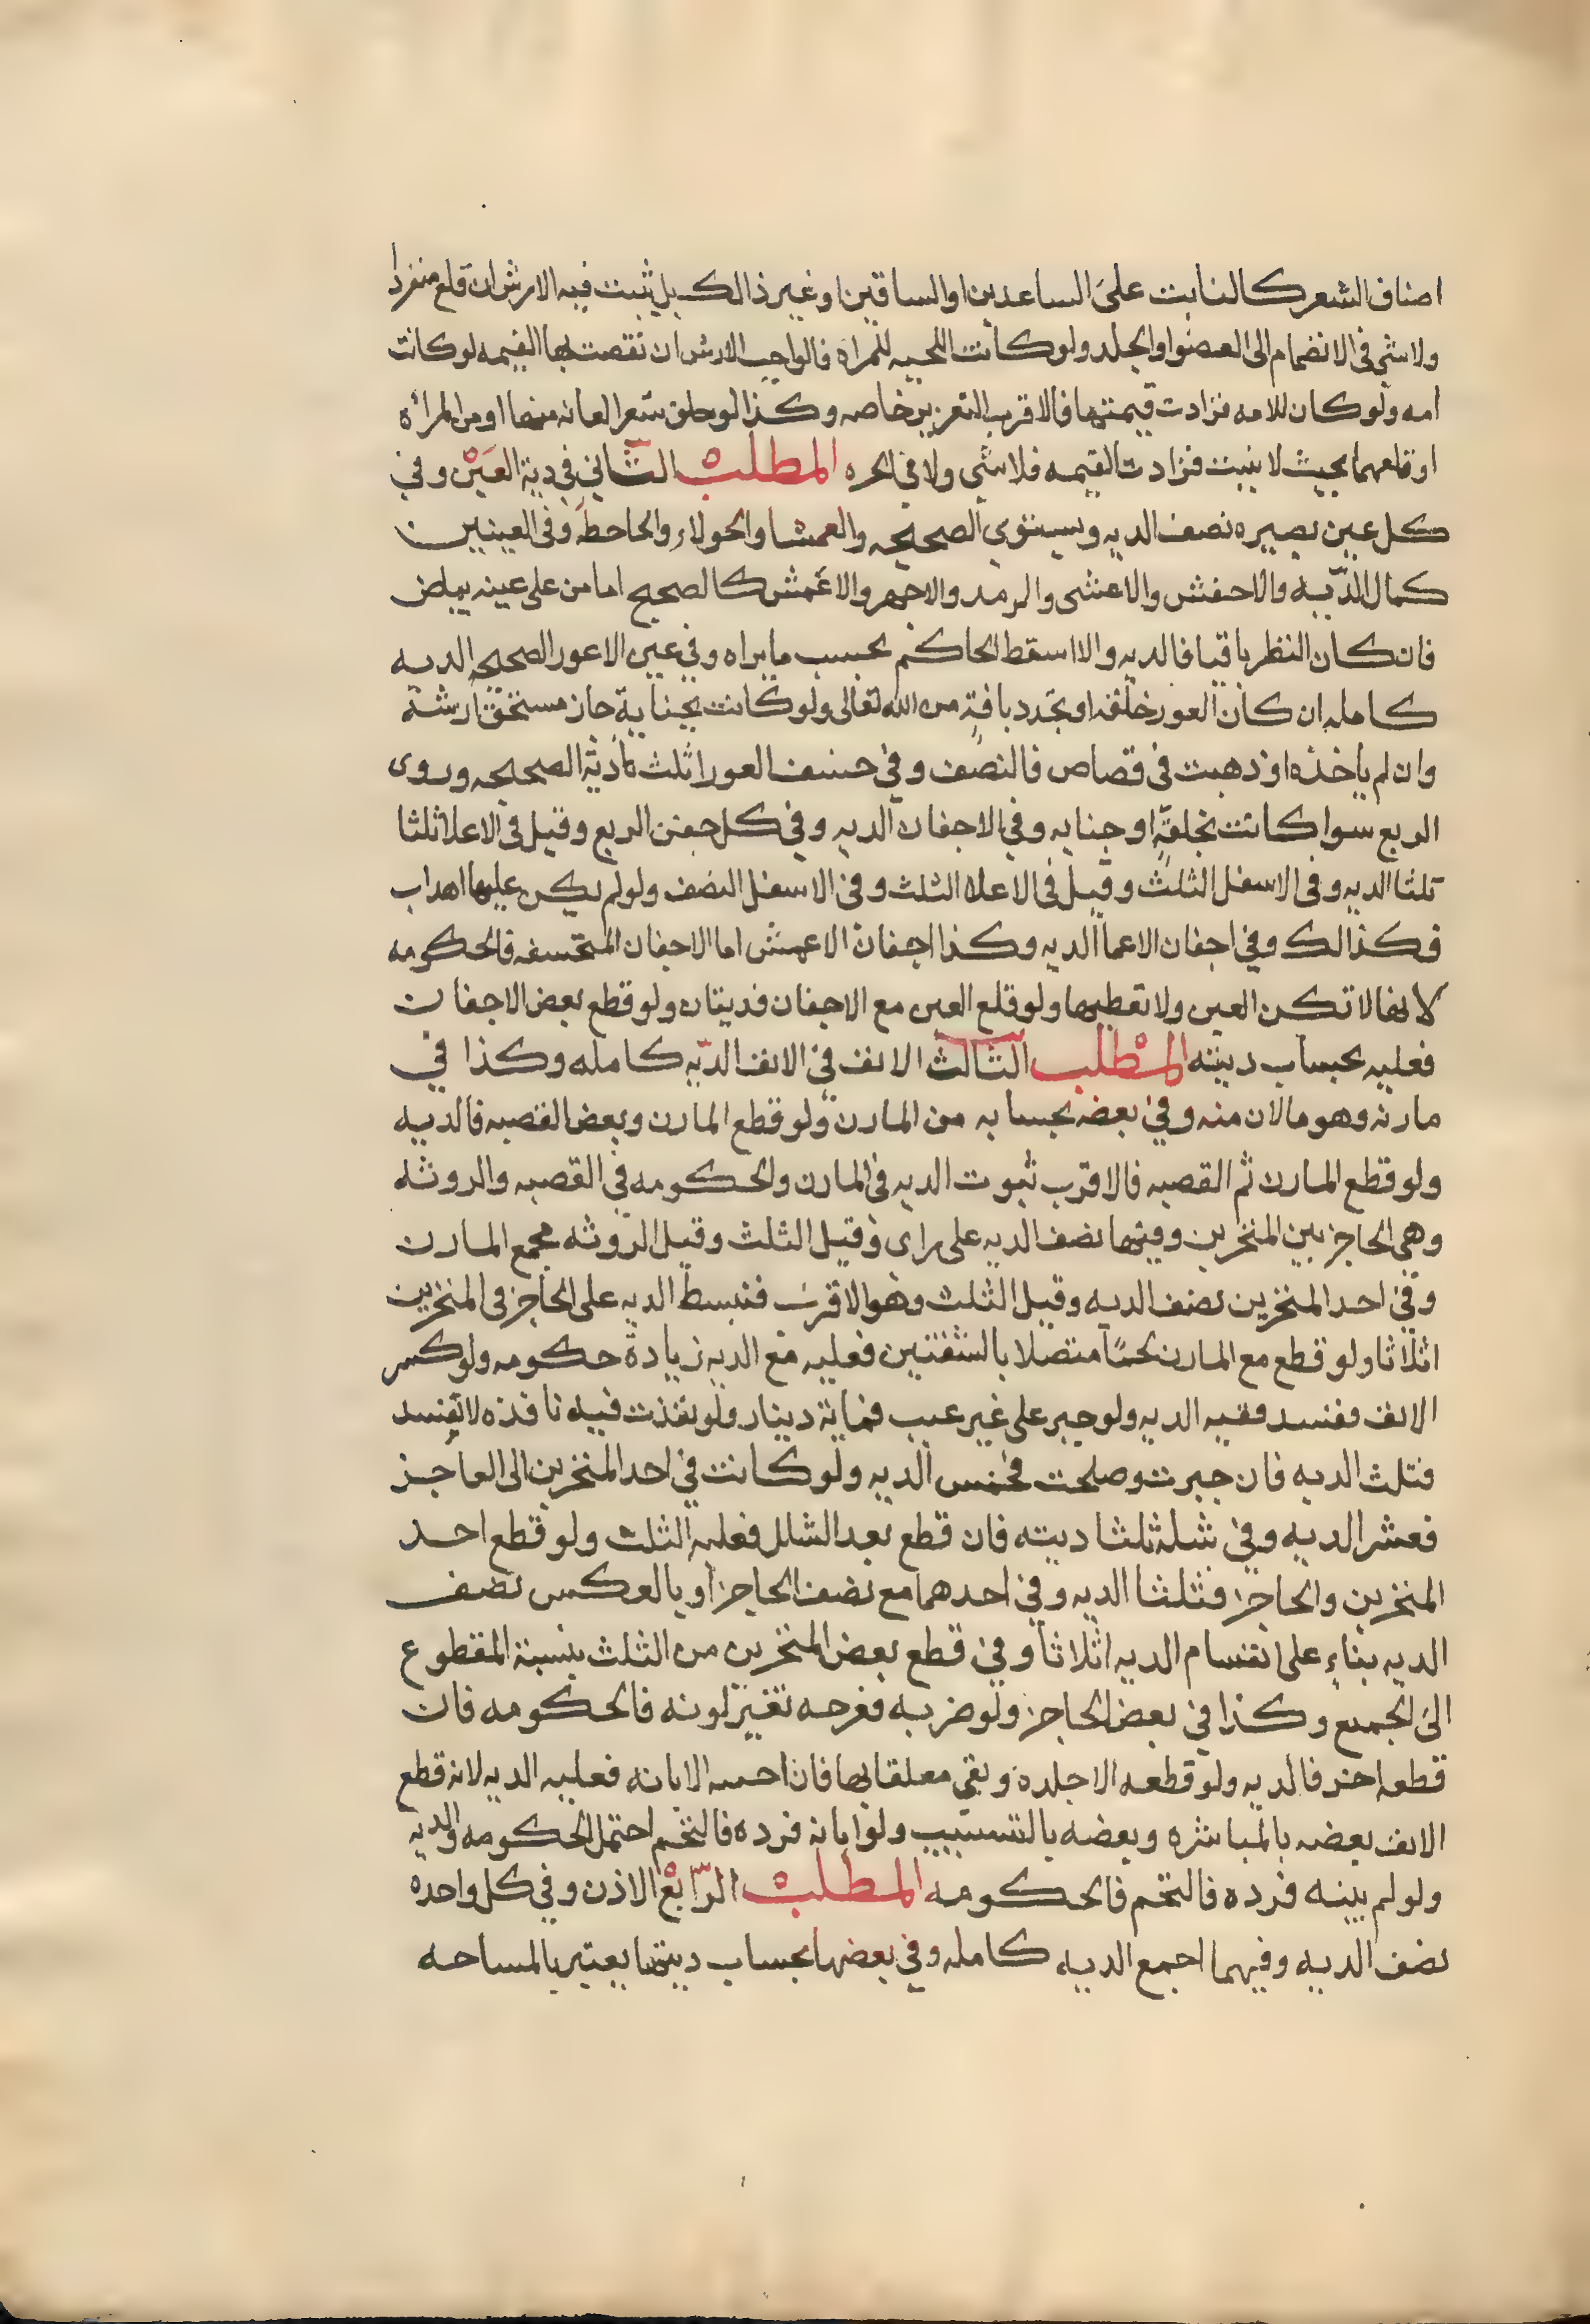 اصناف الشعر كالنابت على الساعدين او الساقين او غير ذالك بل يثبت فيه الارش ان قلع منفردا
ولا شي في الانضمام الى العضوا والجلد ولو كانت اللحيه للمراه فالواجب الارش ان نقصت بها القيمه لو كانت
امه ولو كان للامه فزادت قيمتها فالاقرب التعزير خاصه وكذا لو حلق شعر العانه منها او من المراه
او قلعهما بحيث لا ينبت فزادت القيمه فلا شي ولا في الحره المطلب الثاني في دية العين وفي
كل عين بصيره نصف الديه ويستوي الصحيحه والعمشا والحولاء والجاحظه وفي العينين
كمال الديه والاخفش والاعشى والرمد والاجهر والاغمش كالصحيح اما من على عينه بياض
فان كان النظر باقيا فالديه والا اسقط الحاكم بحسب ما يراه وفي عين الاعور الصحيحه الديه
كامله ان كان العور خلقه او تجدد بافة من الله تعالى ولو كانت بجناية جان مستحق ارشه
وان لم ياخذه او ذهبت في قصاص فالنصف وفي خسف العورا ثلث دية الصحيحه وروى
الربع سوا كانت بخلقة او جنايه وفي الاجفان الديه وفي كل جفن الربع وقيل في الاعلا ثلثا
ثلثا الديه وفي الاسفل الثلث وقيل في الاعلا الثلث وفي الاسفل النصف ولو لم يكن عليها اهداب
فكذالك وفي اجفان الاعما الديه وكذا اجفان الاعمش اما الاجفان المتخسفه فالحكومه
لانها لا تكن العين ولا تغطيها ولو قلع العين مع الاجفان فديتان ولو قطع بعض الاجفان
فعليه بحساب ديته المطلب الثالث الانف في الانف الديه كامله وكذا في
مارنه وهو مالان منه وفي بعضه بحسابه من المارن ولو قطع المارن وبعض القصبه فالديه
ولو قطع المارن ثم القصبه فالاقرب ثبوت الديه في المارن والحكومه في القصبه والروثه
وهي الحاجز بين المنخرين وفيها نصف الديه على راى وقيل الثلث وقيل الروثه مجمع المارن
وفي احد المنخرين نصف الديه وقيل الثلث وهو الاقرب فتبسط الديه على الحاجز في المنخرين
اثلاثا ولو قطع مع المارن لحما متصلا بالشفتين فعليه مع الديه زيادة حكومه ولو كسر
الانف ففسد ففيه الديه ولو جبر على غير عيب فماية دينار ولو نفذت فيه نافذه لا تفسد
فثلث الديه فان جبرت وصلحت فخمس الديه ولو كانت في احد المنخرين الى العاجز
فعشر الديه وفي شلله ثلثا ديته فان قطع بعد الشلل فعليه الثلث ولو قطع احد
المنخرين والحاجز فثلثا الديه وفي احدهما مع نصف الحاجز او بالعكس نصف
الديه بناء على انقسام الديه اثلاثا وفي قطع بعض المنخرين من الثلث بنسبة المقطوع
الى الجميع وكذا في بعض الحاجز ولو ضربه فعرجه تغير لونه فالحكومه فان
قطعه اخر فالديه ولو قطعه الا جلده وبقي معلقا بها فان احسه الابانه فعليه الديه لانه قطع
الانف بعضه بالمباشره وبعضه بالتسبيب ولو ابانه فرده فالتحم احتمل الحكومه والديه
ولو لم يبنه فرده فالتحم فالحكومه المطلب الرابع الاذن وفي كل واحده
نصف الديه وفيهما اجمع الديه كامله وفي بعضها بحساب ديتها يعتبر بالمساحه